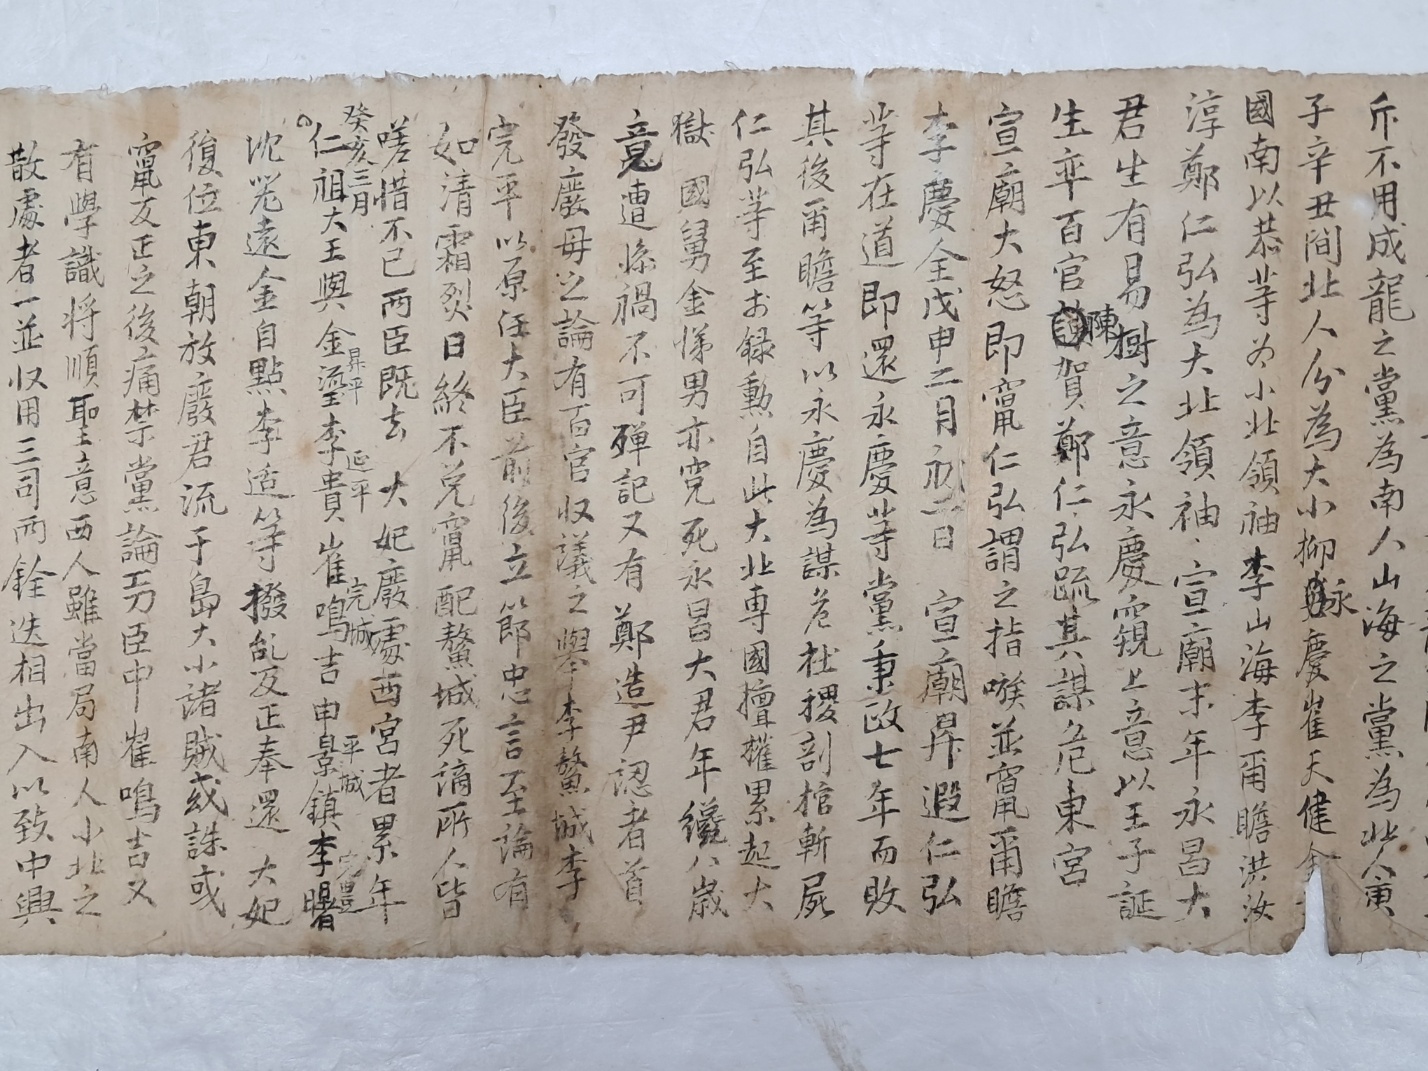 斥不用成龍之黨爲南人山海之黨爲北人寅
子辛丑間北人分爲大小柳永慶崔天健金
國南以恭等为小北領袖李山海李爾瞻洪汝
淳鄭仁弘爲大北領袖宣廟末年永昌大
君生有易樹之意永慶窺上意以王子誕
生率百官陳賀鄭仁弘疏其謀危東宮
宣廟大怒即竄仁弘謂之指嗾並竄爾瞻
李慶全戊申二月初二日 宣廟昇遐仁弘
等在道即還永慶等黨秉政七年而敗
其後爾瞻等以永慶爲謀危社稷剖棺斬屍
仁弘等至於錄勳自此大北專國擅權累起大
獄 國舅金悌男亦寃死永昌大君年纔八歲
竟遭慘禍不可殫記又有鄭造尹訒者首
發廢母之論有百官収議之擧李鰲城李
完平以原任大臣前後立節忠言至論有
如清霜烈日終不免竄配鰲城死謫所人皆
嗟惜不已兩臣既去 大妃廢處西宮者累年
癸亥三月
仁祖大王與金瑬李貴崔鳴吉申景鎮李曙
昇平 延平 完城 平城 完豊
沈器遠金自點李适等撥亂反正奉還 大妃
復位東朝放廢君流于島大小諸賊或誅或
竄反正之後痛禁黨論功臣中崔鳴吉又
有學識將順 聖意西人雖當局南人小北之
散處者一並収用三司兩銓迭相出入以致中興